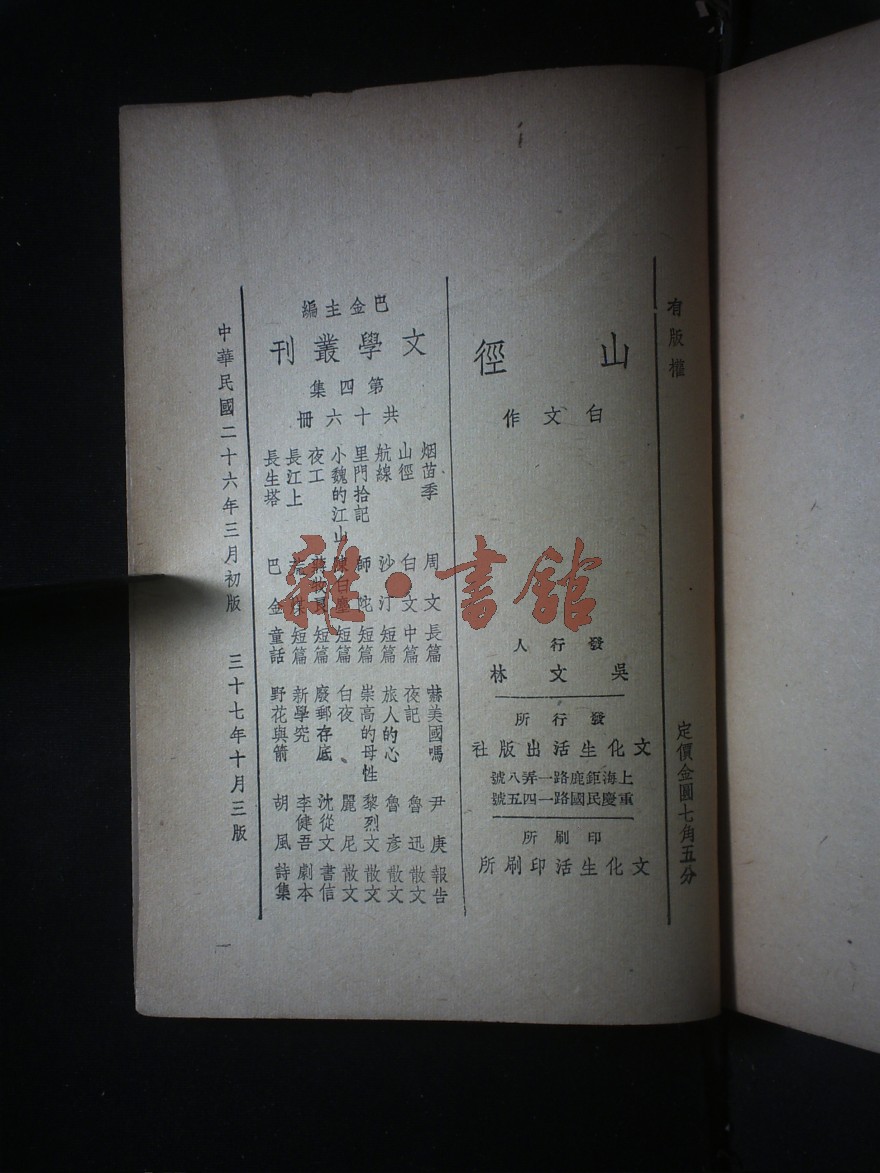 有版權
定價金圓七角五分
山徑
白文作
發行人
吳文林
發行所
文化生活出版社
上海鉅鹿路一弄八號
重慶民國路一四五號
印刷所
文化生活印刷所
巴金主編
文學叢刊
第四集
共十六冊
烟苗季 周文 長篇
山徑 白文 中篇
航線 沙汀 短篇
里門拾記 師陀 短篇
小魏的江山 陳白塵 短篇
夜工 蔣牧良 短篇
長江上 荒煤 短篇
長生塔 巴金 童話
嚇美國嗎 尹庚 報告
夜記 魯迅 散文
旅人的心 魯彥 散文
崇高的母性 黎烈文 散文
白夜 麗尼 散文
廢郵存底 沈從文 書信
新學究 李健吾 劇本
野花與箭 胡風 詩集
中華民國二十六年三月初版 三十七年十月三版
一
雜·書館